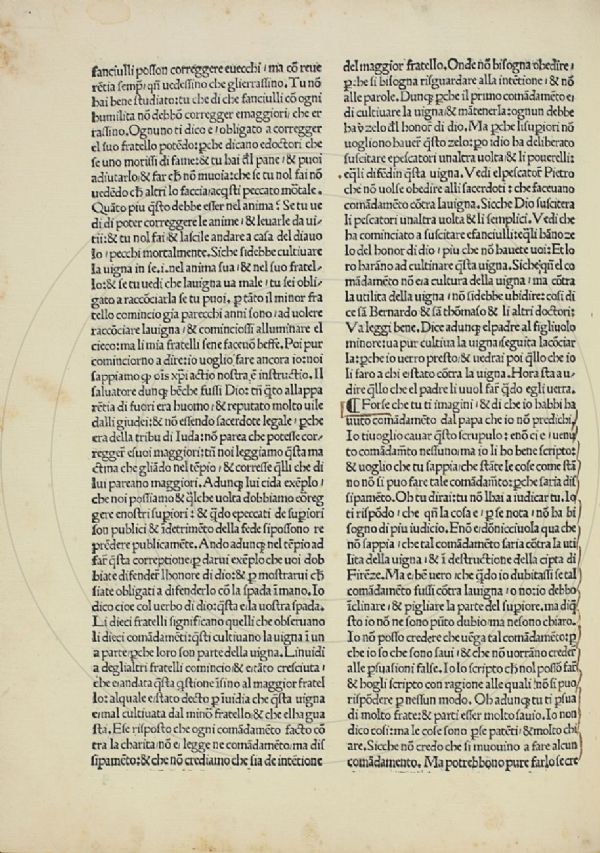 fanciulli posson correggere euecchi / ma cō reue
rētia semp; qñ uedessino che glierrassino. Tu nō
hai bene studiato: tu che di che fanciulli cō ogni
humilita nō debbō correger emaggiori / che er
rassino. Ognuno ti dico e / obligato a corregger
el suo fratello potēdo: pche dicano edoctori che
se uno morissi di fame: & tu hai dl pane / & puoi
adiutarlo / & far ch nō muoia: che se tu nol fai nō
uedēdo ch altri lo faccia / acqsti peccato mōtale.
Quāto piu qsto debbe esser nel anima? Se tu ue
di di poter correggere le anime / & leuarle da ui-
tii: & tu nol fai / & lascile andare a casa del diauo
lo / pecchi mortalmente. Siche sidebbe cultiuare
la uigna in se. i. nel anima sua / & nel suo fratel-
lo: & se tu uedi che lauigna ua male / tu sei obli-
gato a raccōciarla se tu puoi. p tāto il minor fra
tello comincio gia parecchi anni sono / ad uolere
raccōciare lauigna / & cominciossi alluminare el
cieco: ma li mia fratelli sene faceuō beffe. Poi pur
cominciorno a dire: io uoglio fare ancora io: noi
sappiamo q ois xpi actio nostra ē instructio. Il
saluatore dunq bēche fussi Dio: tñ qto allappa
rētia di fuori era huomo / & reputato molto uile
dalli giudei: & nō essendo sacerdote legale / pche
era della tribu di Iuda: nō parea che potesse cor-
regger esuoi maggiori: tñ noi leggiamo qsta ma
ctina che gliādo nel tēpio / & corresse qlli che di
lui pareano maggiori. Adunq lui cida exēplo /
che noi possiamo & qlche uolta dobbiamo correg
gere enostri supiori: & qdo epeccati de supiori
son publici & idetrimēto della fede sipossono re
prēdere publicamēte. Ando adunq nel tēpio ad
far qsta correptione: p darui exēplo che uoi dob
biate difender lhonore di dio: & p mostrarui ch
siate obligati a difenderlo cō la spada ī mano. Io
dico cioe col uerbo di dio: qsta e / la uostra spada.
Li dieci fratelli significano quelli che obseruano
li dieci comādamēti: qsti cultiuano la uigna ī un
a parte: pche loro son parte della uigna. Linuidi
a deglialtri fratelli comincio & e / tāto cresciuta /
che e / andata qsta qstione īsino al maggior fratel
lo: alquale e / stato decto p īuidia che qsta uigna
e / mal cultiuata dal minō fratello: & che elha gua
sta. E se risposto che ogni comādamēto facto cō
tra la charita / nō e / legge ne comādamēto / ma dis
sipamēto: & che nō crediamo che sia de intētione
del maggior fratello. Onde nō bisogna obedire /
p: he si bisogna risguardare alla intētione / & nō
alle parole. Dunq pche il primo comādamēto e /
di cultiuare la uigna / & mātenerla: ognun debbe
hauer zelo dl honor di dio. Ma pche lisupiori nō
uogliono hauer qsto zelo: po idio ha deliberato
suscitare epescatori unaltra uolta / & li pouerelli:
eqli difēdin qsta uigna. Vedi el pescator Pietro
che nō uolse obedire alli sacerdoti: che faceuano
comādamēto cōtra lauigna. Sicche Dio suscitera
li pescatori unaltra uolta & li semplici. Vedi che
ha cominciato a suscitare efanciulli: eqli hāno ze
lo del honor di dio / piu che nō hauete uoi: Et lo
ro harāno ad cultiuare qsta uigna. Siche qñ el co
mādamēto nō era cultura della uigna / ma cōtra
la utilita della uigna / nō sidebbe ubidire: cosi di
ce sā Bernardo & sā thōmaso / & li altri doctori:
Va leggi bene. Dice adunq el padre al figliuolo
minore: ua pur cultiua la uigna / seguita lacōciar
la: pche io uerro presto / & uedrai poi qllo che io
li faro a chi e / stato cōtra la uigna. Hora sta a u-
dire qllo che el padre li uuol far qdo egli uerra.
¶ Forse che tu ti imagini / & di che io habbi ha
uuto comādamēto dal papa che io nō predichi.
Io ti uoglio cauar qsto scrupulo: e nō ci e / uenu
to comādamto nessuno / ma io li ho bene scripto:
& uoglio che tu sappia / che stāte le cose come stā
no nō si puo fare tale comādamto: pche saria dis
sipamēto. Oh tu dirai: tu nō lhai a iudicar tu. Io
ti rispōdo / che qñ la cosa e / p se nota / nō ha bi
sogno di piu iudicio. E nō e / dōnicciuola qua che
nō sappia / che tal comādamēto saria cōtra la uti
lita della uigna / & ī destructione della cipta di
Firēze. Ma e / bē uero / che qdo io dubitassi se tal
comādamēto fussi cōtra lauigna / o no: io debbo
īclinare / & pigliare la parte del supiore. ma di q
sto io nō ne sono pūto dubio / ma ne sono chiaro.
Io nō posso credere che uēga tal comādamēto: p
che io so che sono saui / & che nō uorrāno creder
alle psuasioni false. Io lo scripto ch nol possō far
& hogli scripto con ragione alle quali / nō si puo
rispōdere p nessun modo. Oh adunq tu ti psua
di molto frate: & parti esser molto sauio. Io non
dico cosi: ma le cose sono p se patēti / & molto chi
are. Sicche nō credo che si muouino a fare alcun
comādamento. Ma potrebbono pure farlo se cre